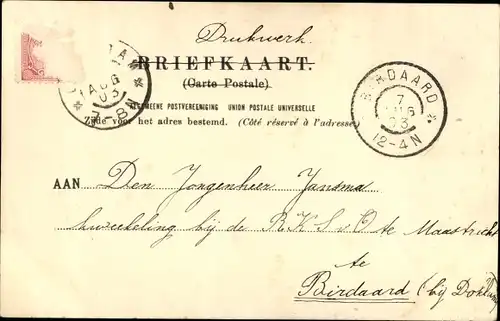 Drukwerk.
BRIEFKAART.
(Carte Postale)
ALGEMEENE POSTVEREENIGING UNION POSTALE UNIVERSELLE
Zijde voor het adres bestemd. (Côté réservé à l'adresse)
7 AUG 03
7-8
BIRDAARD
7 AUG 03
12-4N
AAN Den Jongenheer Jansma
kweekeling bij de R.K.S. v O te Maastricht
te
Birdaard (bij Dokkum